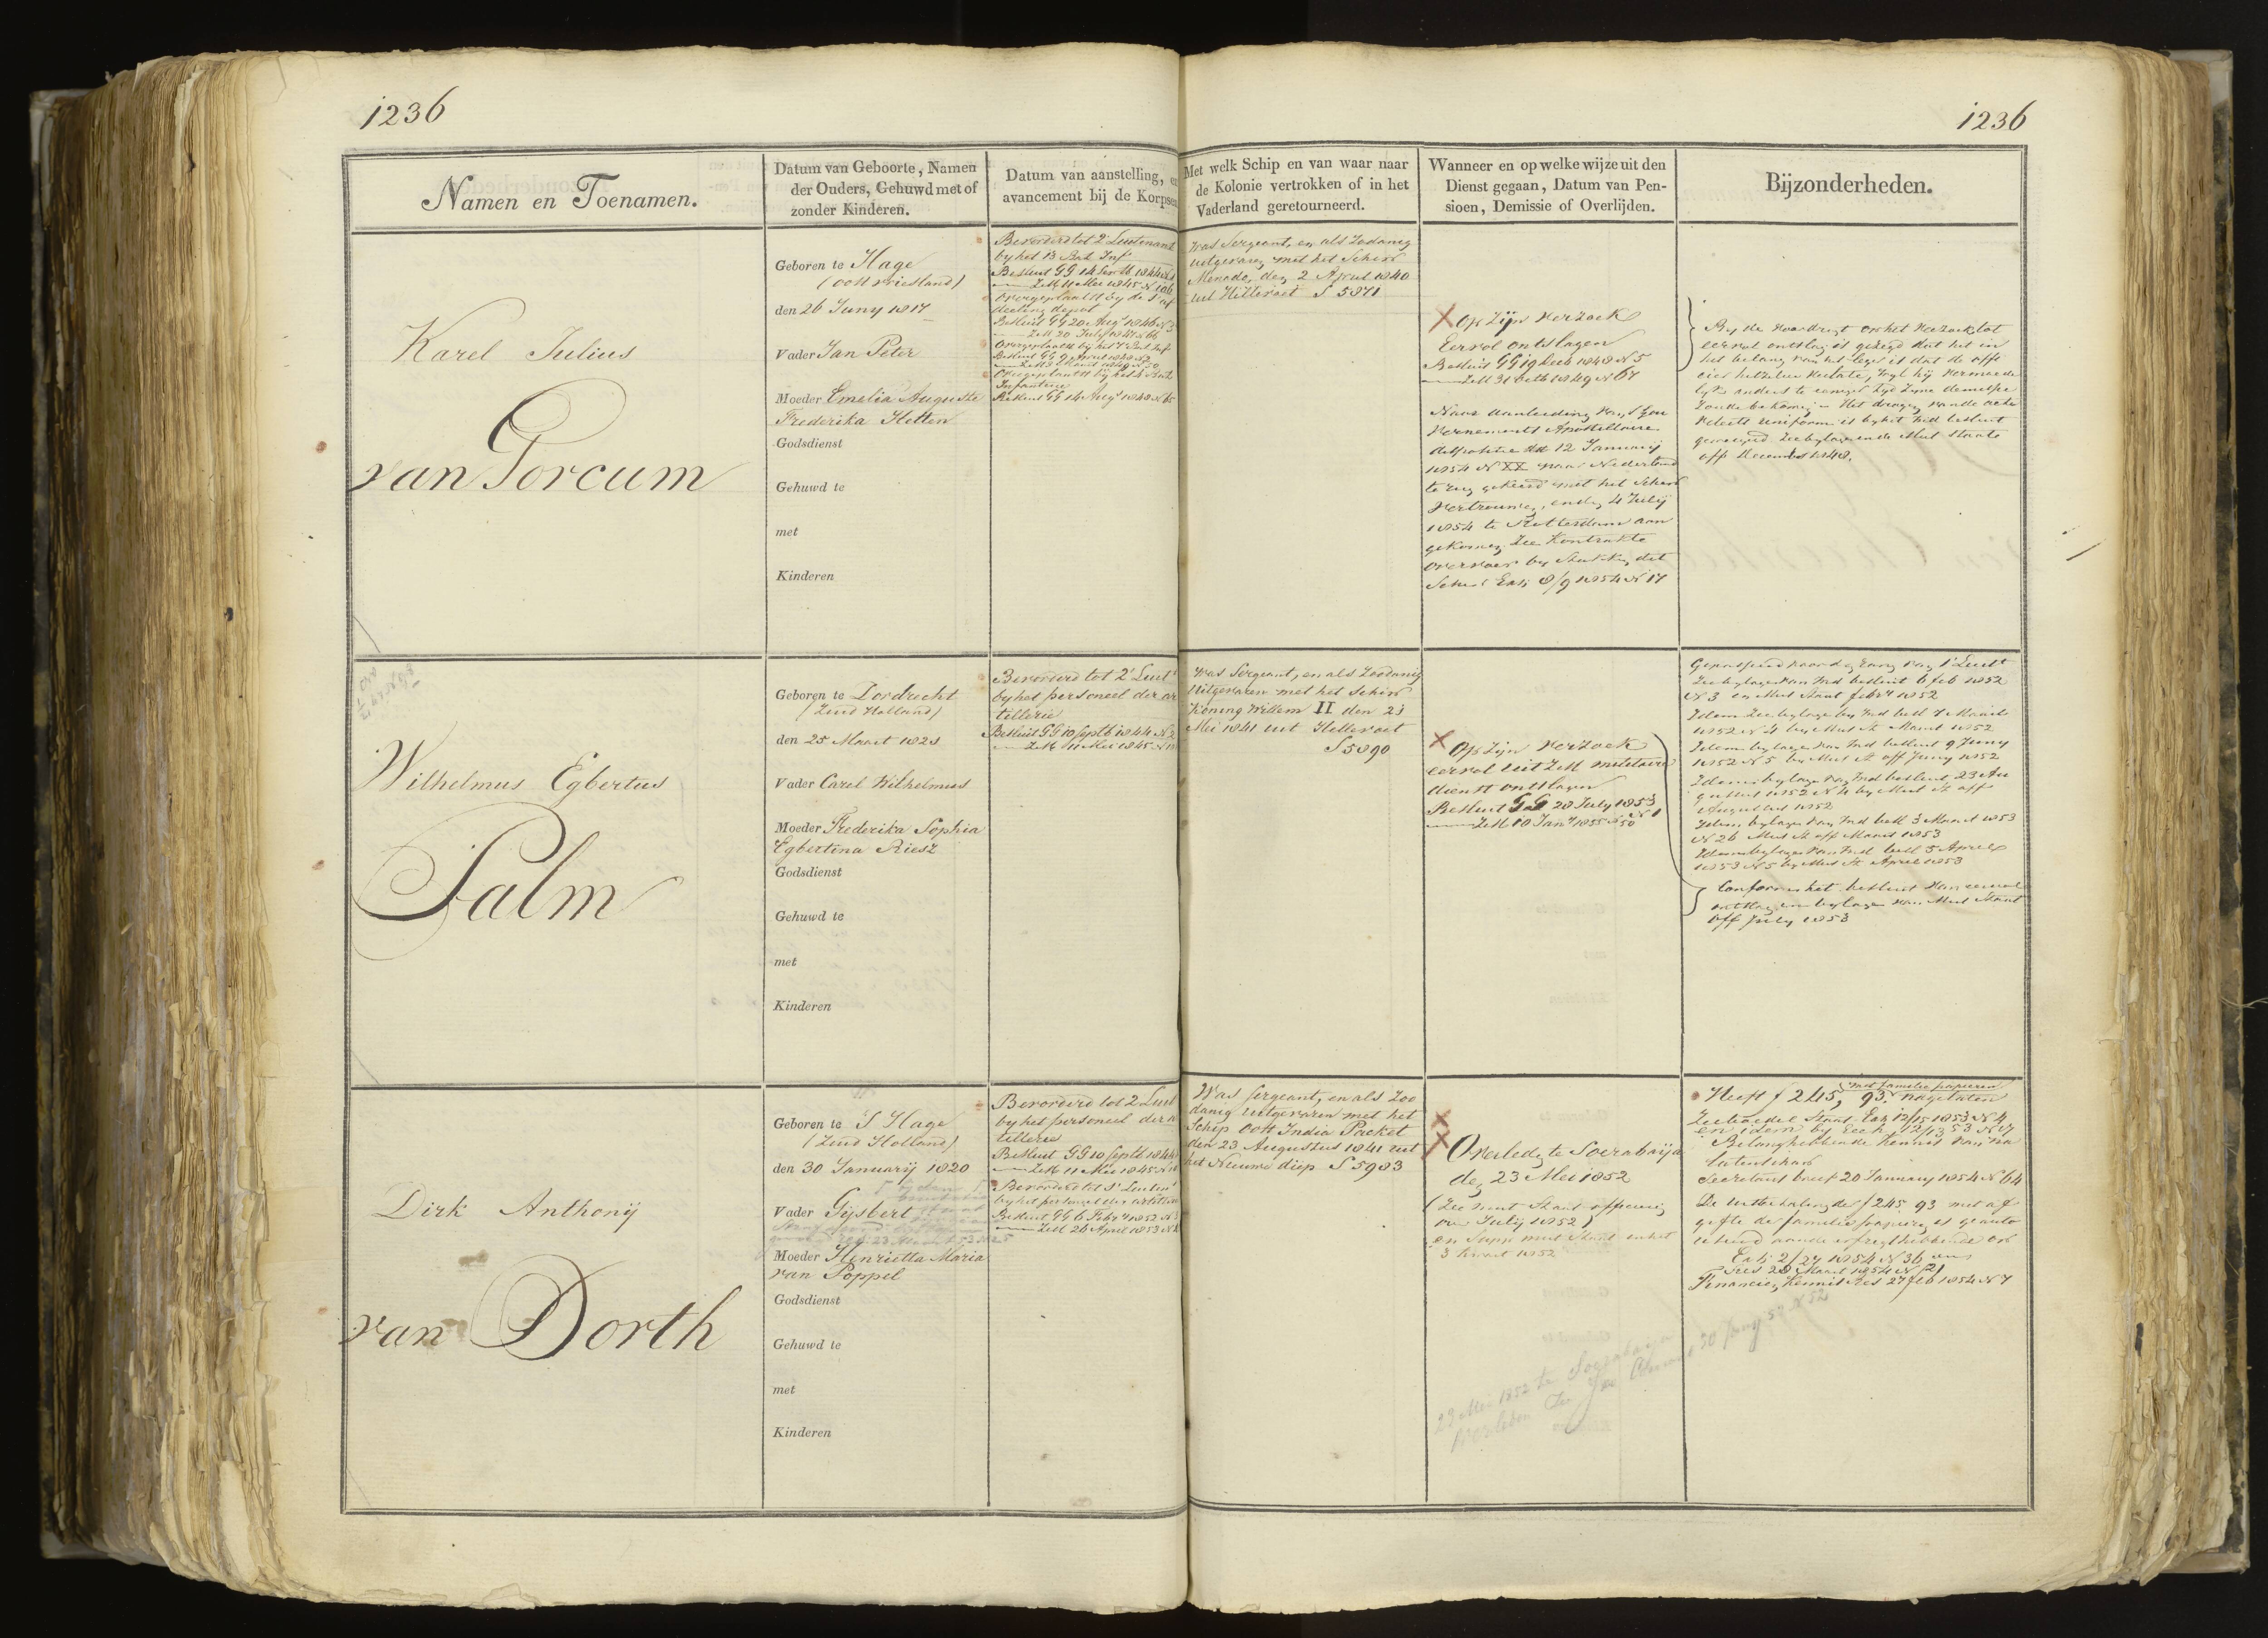 1236
1236
Namen en Toenamen.
Datum van Geboorte, Namen
der Ouders, Gehuwd met of
zonder Kinderen.
Datum van aanstelling, en
avancement bij de Korpsen
Met welk Schip en van waar naar
de Kolonie vertrokken of in het
Vaderland geretourneerd.
Wanneer en op welke wijze uit den
Dienst gegaan, Datum van Pen-
sioen, Demissie of Overlijden.
Bijzonderheden.
Karel Julius
van Gorcum
Geboren te Hage
(Oost Vriesland)
den 26 Juny 1817
Vader Jan Peter
Moeder Emelia Auguste
Frederika Hetten
Godsdienst
Gehuwd te
met
Kinderen
Bevorderd tot 2e Luitenant
by het 13 Bat Inf
Besluit GG 14 1844
Zetb 11 Mei 1845 N 106
Overgeplaatst by de
deeling depot
Besluit GG 20 Augs 1846 N
Zetb 20 July 1847 N 66
Overgeplaatst by het 7 Bat Inf
Besluit GG 9 April 1848 N 3
Overgeplaatst by het 4 Bat
Infanterie
Besluit GG 14 Augs 1848 N 6
Was Sergeant, en als Zodanig
uitgevaren met het Schip
Menado, den 2 April 1840
uit Hellevoet S 5871
Op Zijn Verzoek
Eervol ontslagen
Besluit GG 19 Decb 1848 N 5
Zetb 31 Octb 1849 N 67
Naar aanleiding van 't Gou
vernements Apostillaire
dispositie dd 12 January
1854 N XX naar Nederland
te rug gekeerd met het Schip
Vertrouwen, en den 4 Julij
1854 te Rotterdam aan
gekomen, Zie Kontrakte
overvoer by Stukken, dat
Schip Exh 8/9 1854 N 17
By de voordragt op het Verzoek tot
eervol ontslag is gezegd dat het in
het belang van het leger is dat de offi
cier hetzelve verlate,
Zoude bekomen Het dragen van de activi
teits uniform is by het Ind besluit
geweigerd Zie bylagen en de Mut Staat
off December 1848.
Wilhelmus Egbertus
Palm
Geboren te Dordrecht
(Zuid Holland)
den 25 Maart 1821
Vader Carel Wilhelmus
Moeder Frederika Sophia
Egbertina Riesz
Godsdienst
Gehuwd te
met
Kinderen
Bevorderd tot 2e Luitt
by het personeel der ar
tillerie
Besluit GG 10 Septb 1844 N 2
Zetb 11 Mei 1845 N
Was Sergeant, en als Zoodanig
uitgevaren met het Schip
Koning Willem II den 23
Mei 1841 uit Hellevoet
S 5890
Op Zijn Verzoek
eervol uit Zetb militaire
dienst ontslagen
Besluit GG 28 July 1853
N 1
Zetb 10 Jany 1855 N 50
Gepasseerd voor den rang van 1e Luitt
Zie bylagen van Ind besluit 6 feb 1852
N 3 en Mut Staat febry 1852
Idem Zie bylage by Ind besl 7 Maart
1852 N 4 by Mut St Maart 1852
Idem bylage van Ind besluit 9 Juny
1852 N 5 by Mut St off Juny 1852
Idem bylage van Ind besluit 23 Au
gustus 1852 N 4 by Mut St off
Augustus 1852
Idem bylage van Ind besl 3 Maart 1853
N 26 Mut St off Maart 1853
Idem bylage van Ind besl 5 April
1853 N 5 by Mut St April 1853
Conform het besluit van eervol
ontslag, en bylagen van Mut Staat
off July 1853
Dirk Anthonij
van Dorth
Geboren te S Hage
(Zuid Holland)
den 30 Januarij 1820
Vader Gijsbert
Moeder Henrietta Maria
van Poppel
Godsdienst
Gehuwd te
met
Kinderen
Bevorderd tot 2 Luit
by het personeel der ar
tillerie
Besluit GG 10 Septb 1844
Zetb 11 Mei 1845 N
Bevorderd tot 1e Luitent
by het personeel der artillerie
Besluit GG 6 Febry 1852 N 3
Zetb 26 April 1853 N
Was sergeant, en als Zoo
danig uitgevaren met het
Schip Oost India Packet
den 23 Augustus 1841 uit
het Nieuwe diep S 5983
Overleden te Soerabaija
den 23 Mei 1852
(Zie mut Staat officieren
over Julij 1852)
en Supp mut Staat en het
3 kwart 1852
23 Mei 1852 te Soerabaija
overleden Zie
met familie papieren
Heeft f 245, 93 nagelaten
Zie boedel Staat Exh 12/15 1853 N 4
en idem by Exh 12/13 53 N 7
Belanghebbende Kennis van na
latenschap
Secretaris brief 20 January 1854 N 64
De uitbetaling de f 245 93 met af
gifte de familie papieren is geauto
riseerd aan de erfregthebbende op
Exh 2/27 1854 N 36 en
Res 28 Maart 1854 N 21
Financien, Kennis Res 27 feb 1854 N 7